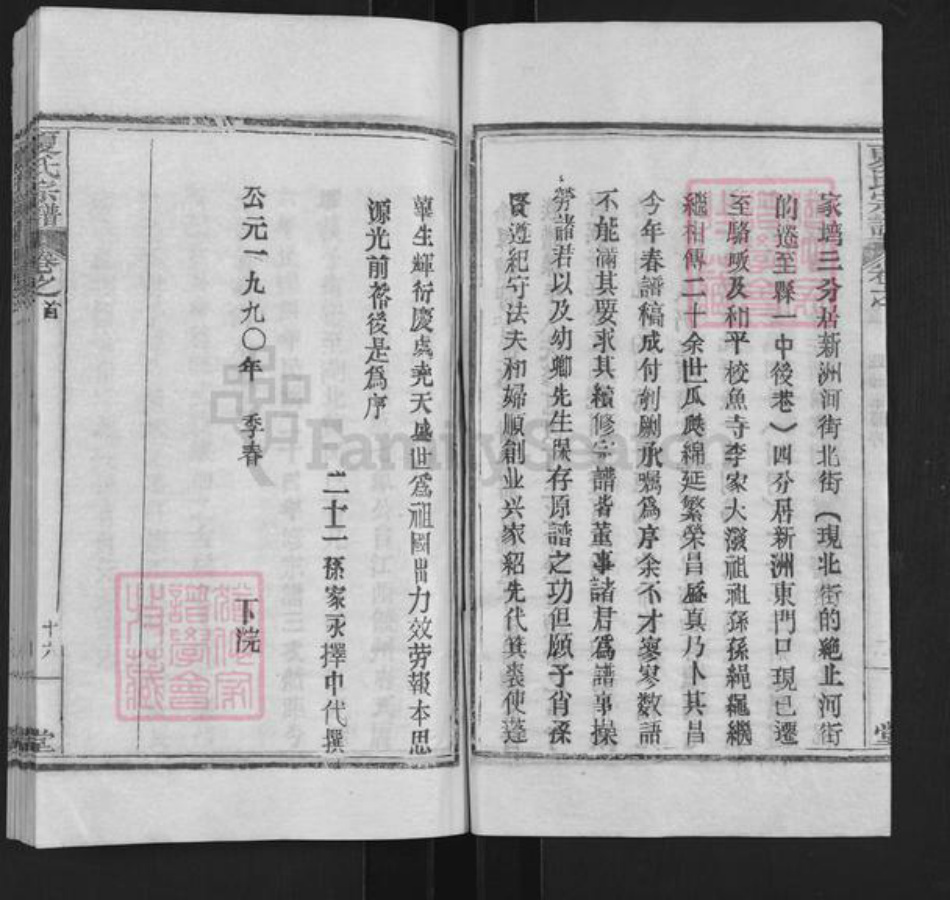 家墈三分居新洲河街北街（現北街的絶止河街
的遷至縣一中後巷）四分居新洲東門口現已遷
至駱墩及和平校魚寺李家大灣祖祖孫孫繩繩繼
繼相傳二十余世瓜瓞綿延繁榮昌盛真乃卜其昌
今年春譜稿成付剞劂承囑爲序余不才寥寥数語
不能滿其要求其續修宗譜皆董事諸君爲譜事操
勞諸君以及幼卿先生保存原譜之功但願子肖孫
賢遵紀守法夫和婦順創业兴家紹先代箕裘使蓬
蓽生輝衍慶虞堯天盛世爲祖國出力效劳報本思
源光前裕後是爲序
二十二孫家永擇中代撰
公元一九九〇年 季春
下浣
夏氏宗譜
卷之首
十六
堂
夏氏宗譜
堂
FamilySearch